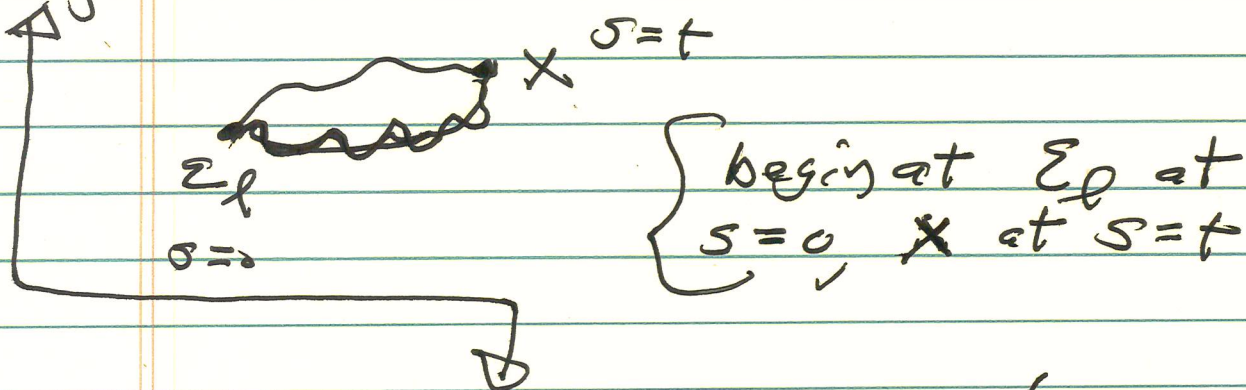 s = t
X
Σℓ
s = 0
{ begin at Σℓ at
s = 0, X at s = t